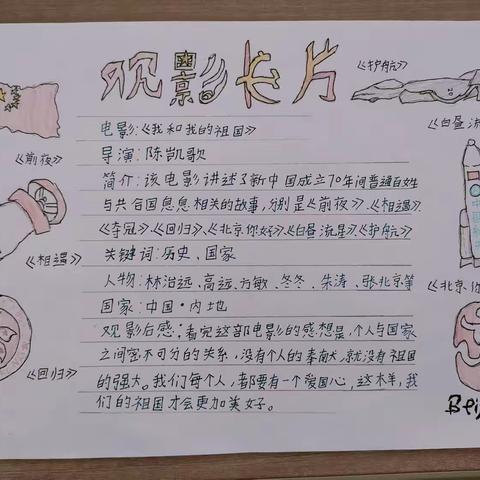 观影卡片
电影:《我和我的祖国》
导演:陈凯歌
简介:该电影讲述了新中国成立70年间普通百姓
与共合国息息相关的故事,分别是《前夜》、《相遇》
《夺冠》、《回归》、《北京你好》、《白昼流星》、《护航》
关键词:历史、国家
人物:林治远、高远、方敏、冬冬、朱涛、张北京等
国家:中国·内地
观影后感:看完这部电影的感想是,个人与国家
之间密不可分的关系,没有个人的奉献,就没有祖国
的强大。我们每个人,都要有一个爱国心,这样,我
们的祖国才会更加美好。
《前夜》
《相遇》
《回归》
《护航》
《白昼流
《北京你
Beij